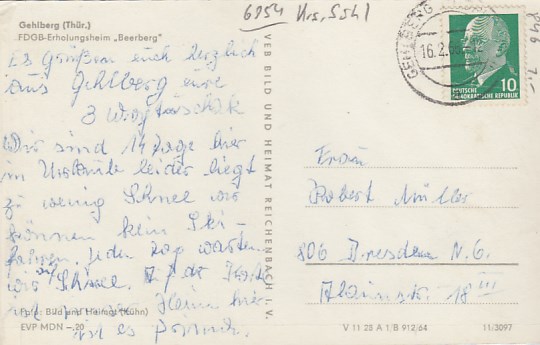 Gehlberg (Thür.)
FDGB-Erholungsheim „Beerberg"
Es Grüßen euch herzlich
aus Gehlberg eure
3
Wir sind 14 Tage hier
im Urlaub leider liegt
zu wenig Schnee wir
können kein Ski-
fahren. jeden Tag warten
wir auf Schnee.
Heim
ist es
Foto: Bild und Heimat (Kühn)
EVP MDN -.20
VEB BILD UND HEIMAT REICHENBACH i. V.
6954
GEHLBERG
16.2.66
DEUTSCHE
DEMOKRATISCHE REPUBLIK
10
Frau
Robert Müller
806 Dresden N. 6.
18 III
V 11 28 A 1/B 912/64
11/3097